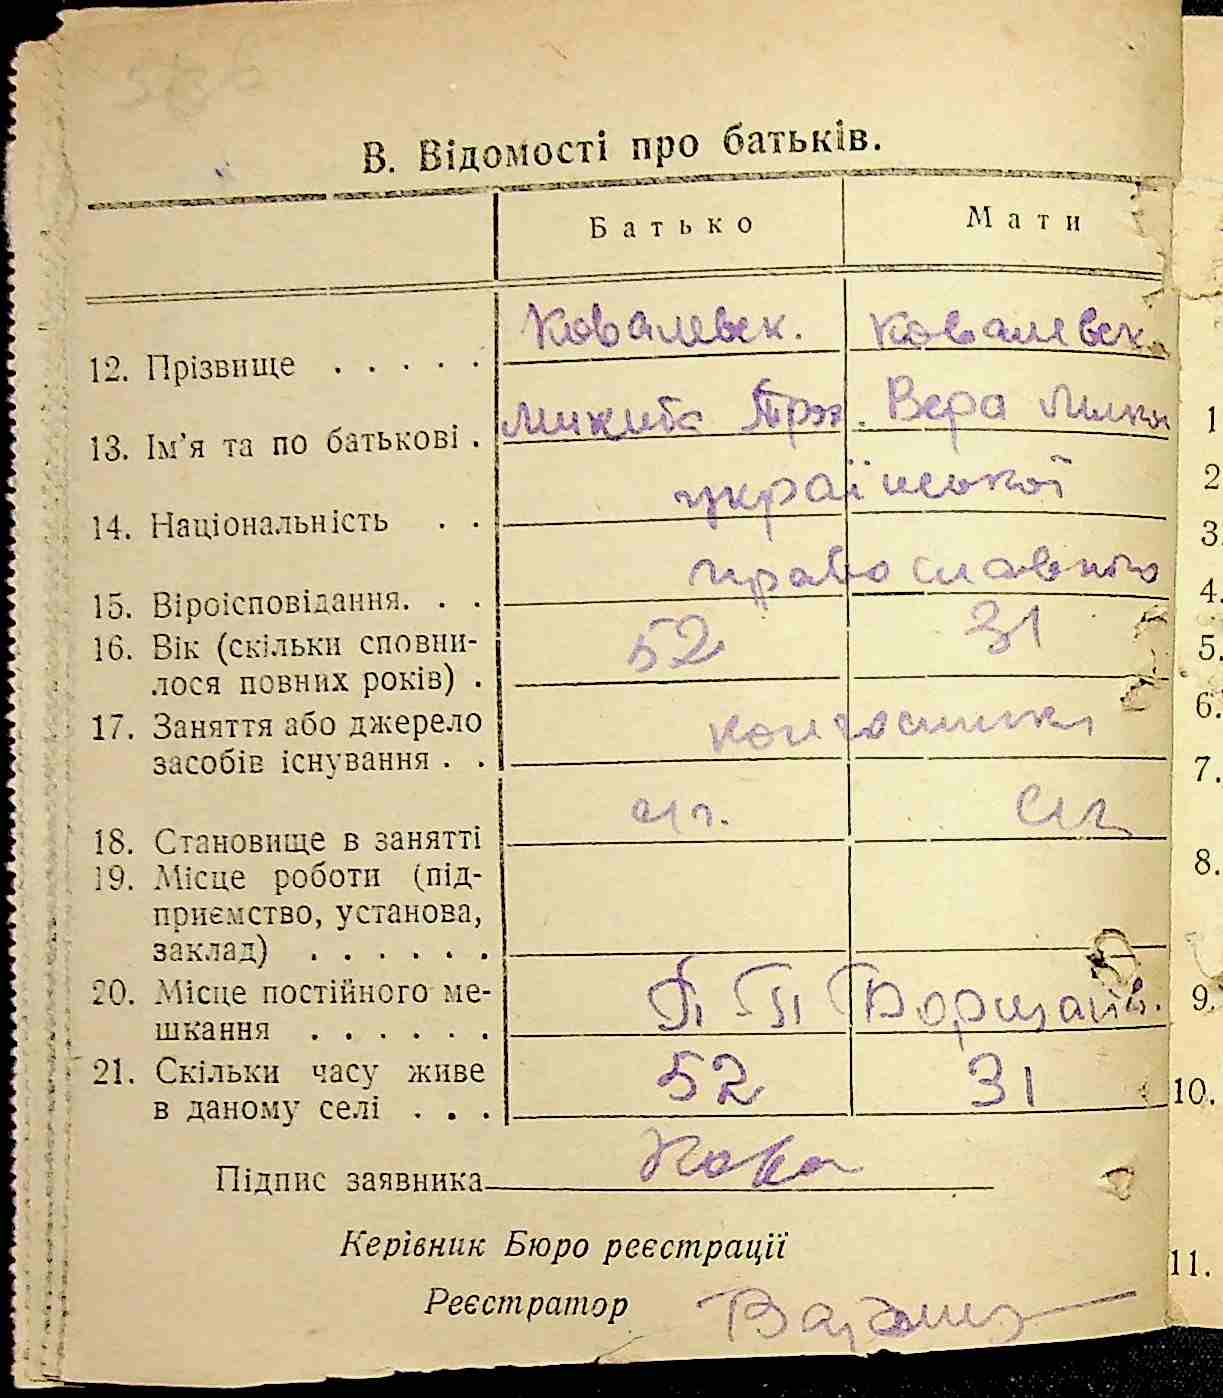 В. Відомості про батьків.
Батько Мати
12. Прізвище . . . . . Ковалевск. Ковалевск.
13. Ім'я та по батькові . Микита Вера
14. Національність . . української
15. Віроісповідання. . . православного
16. Вік (скільки сповни-
лося повних років) . 52 31
17. Заняття або джерело
засобів існування . .
18. Становище в занятті
19. Місце роботи (під-
приємство, установа,
заклад) . . . . . .
20. Місце постійного ме-
шкання . . . . . .
21. Скільки часу живе
в даному селі . . . 52 31
Підпис заявника
Керівник Бюро реєстрації
Реєстратор
1
2
3.
4.
5.
6.
7.
8.
9.
10.
11.